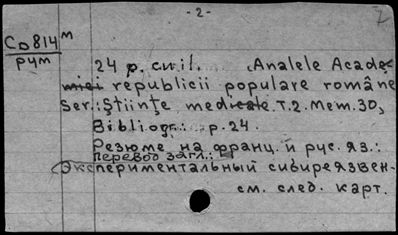 -2-
Сд814 м
рум
24 p. cu il. Analele Acade-
miei republicii populare române
Ser.: Ştiinţe medicale. T.2. Mem. 30,
Bibliogr.: p.24.
Резюме на франц. и рус. яз.:
перевод загл.:
Экспериментальный сибиреязвен-
см. след. карт.